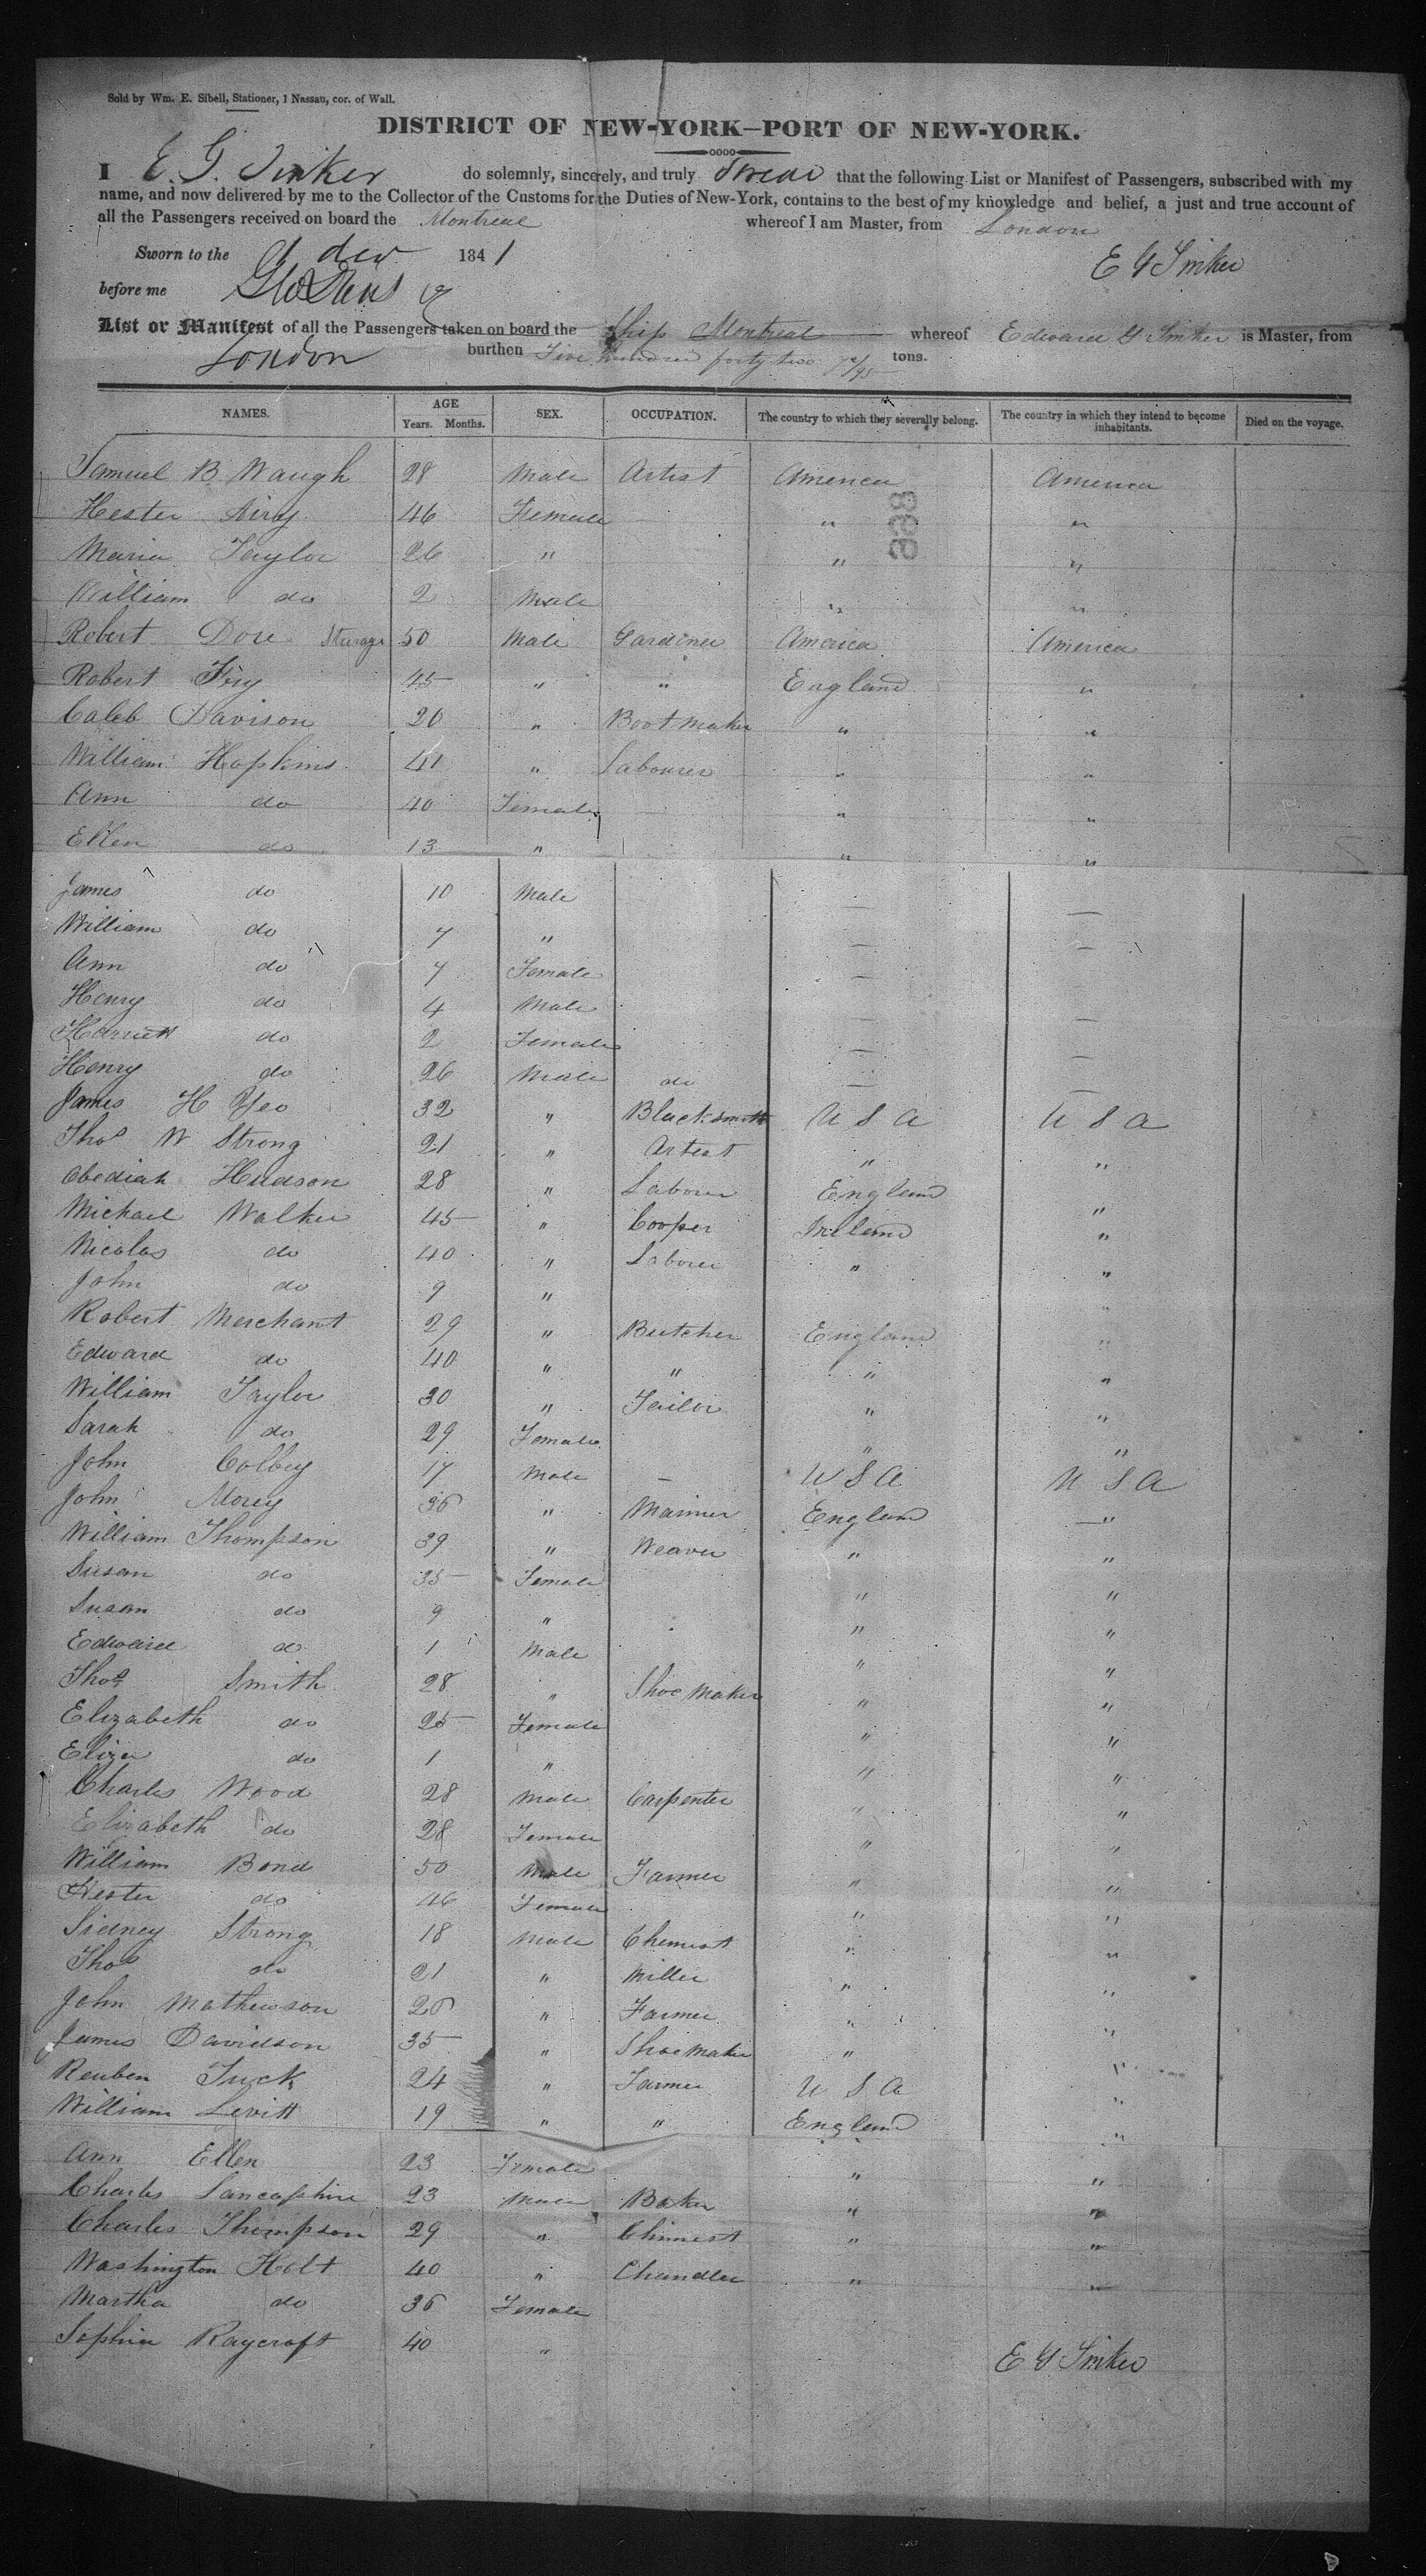 Sold by Wm. E. Sibell, Stationer, 1 Nassau, cor. of Wall.
DISTRICT OF NEW-YORK—PORT OF NEW-YORK.
I E. G. Tinker do solemnly, sincerely, and truly Swear that the following List or Manifest of Passengers, subscribed with my
name, and now delivered by me to the Collector of the Customs for the Duties of New-York, contains to the best of my knowledge and belief, a just and true account of
all the Passengers received on board the Montreal whereof I am Master, from London
Sworn to the 9 dec 1841
E G Tinker
before me
List or Manifest of all the Passengers taken on board the Ship Montreal whereof Edward G Tinker is Master, from
London burthen Five hundred forty two /95 tons.
NAMES. AGE Years. Months. SEX. OCCUPATION. The country to which they severally belong. The country in which they intend to become inhabitants. Died on the voyage.
Samuel B Waugh 28 Male Artist America America
Hester Airy 46 Female " "
Maria Taylor 26 " " "
William do 2 Male " "
Robert Dore Sterage 50 Male Gardiner America America
Robert 45 " " England "
Caleb Davison 20 " Boot maker " "
William Hopkins 41 " Labourer " "
Ann do 40 Female " "
Ellen do 13 " " "
James do 10 Male — —
William do 7 " — —
Ann do 7 Female —
Henry do 4 Male — —
Harriett do 2 Female — —
Henry do 26 Male do — —
James H Yeo 32 " Blacksmith U S A U S A
Thos W Strong 21 " Artist " "
Obediah Hudson 28 " Laborer England "
Michael Walker 45 " Cooper Ireland "
Nicolas do 40 " Laborer " "
John do 9 " "
Robert Merchant 29 " Butcher England "
Edward do 40 " " " "
William Taylor 30 " Tailor " "
Sarah do 29 Female " "
John Colbey 17 Male — U S A U S A
John Morey 36 " Mariner England "
William Thompson 39 " Weaver " "
Susan do 35 Female " "
Susan do 9 " " "
Edward do 1 Male " "
Thos Smith 28 " Shoe Maker " "
Elizabeth do 25 Female " "
Eliza do 1 " " "
Charles Wood 28 Male Carpenter " "
Elizabeth do 28 Female " "
William Bond 50 Male Farmer " "
Hester do 46 Female " "
Sidney Strong 18 Male Chemist " "
Thos do 21 " Miller " "
John Mathewson 26 " Farmer " "
James Davidson 35 " Shoe Maker " "
Reuben Tuck 24 " Farmer U S A "
William Levitt 19 " " England "
Ann Ellen 23 Female " "
Charles Lancashire 23 Male Baker " "
Charles Thompson 29 " Chimist " "
Washington Holt 40 " Chandler " "
Martha do 36 Female
Sophia Raycroft 40 "
E G Tinker